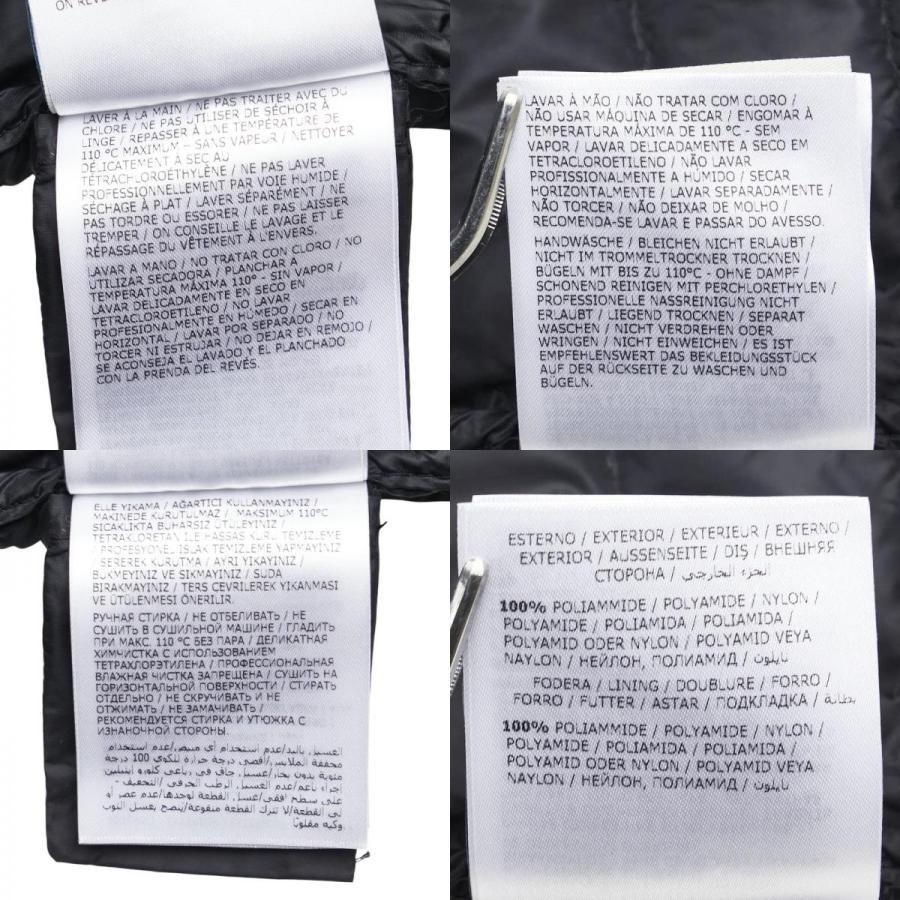 ON REVE
LAVER À LA MAIN / NE PAS TRAITER AVEC DU
CHLORE / NE PAS UTILISER DE SÉCHOIR À
LINGE / REPASSER À UNE TEMPÉRATURE DE
110 °C MAXIMUM – SANS VAPEUR / NETTOYER
DÉLICATEMENT À SEC AU
TÉTRACHLOROÉTHYLÈNE / NE PAS LAVER
PROFESSIONNELLEMENT PAR VOIE HUMIDE /
SÉCHAGE À PLAT / LAVER SÉPARÉMENT / NE
PAS TORDRE OU ESSORER / NE PAS LAISSER
TREMPER / ON CONSEILLE LE LAVAGE ET LE
RÉPASSAGE DU VÊTEMENT À L'ENVERS.
LAVAR A MANO / NO TRATAR CON CLORO / NO
UTILIZAR SECADORA / PLANCHAR A
TEMPERATURA MÁXIMA 110º - SIN VAPOR /
LAVAR DELICADAMENTE EN SECO EN
TETRACLOROETILENO / NO LAVAR
PROFESIONALMENTE EN HÚMEDO / SECAR EN
HORIZONTAL / LAVAR POR SEPARADO / NO
TORCER NI ESTRUJAR / NO DEJAR EN REMOJO /
SE ACONSEJA EL LAVADO Y EL PLANCHADO
CON LA PRENDA DEL REVÉS.
LAVAR À MÃO / NÃO TRATAR COM CLORO /
NÃO USAR MÁQUINA DE SECAR / ENGOMAR À
TEMPERATURA MÁXIMA DE 110 °C - SEM
VAPOR / LAVAR DELICADAMENTE A SECO EM
TETRACLOROETILENO / NÃO LAVAR
PROFISSIONALMENTE A HÚMIDO / SECAR
HORIZONTALMENTE / LAVAR SEPARADAMENTE /
NÃO TORCER / NÃO DEIXAR DE MOLHO /
RECOMENDA-SE LAVAR E PASSAR DO AVESSO.
HANDWÄSCHE / BLEICHEN NICHT ERLAUBT /
NICHT IM TROMMELTROCKNER TROCKNEN /
BÜGELN MIT BIS ZU 110°C - OHNE DAMPF /
SCHONEND REINIGEN MIT PERCHLORETHYLEN /
PROFESSIONELLE NASSREINIGUNG NICHT
ERLAUBT / LIEGEND TROCKNEN / SEPARAT
WASCHEN / NICHT VERDREHEN ODER
WRINGEN / NICHT EINWEICHEN / ES IST
EMPFEHLENSWERT DAS BEKLEIDUNGSSTÜCK
AUF DER RÜCKSEITE ZU WASCHEN UND
BÜGELN.
ELLE YIKAMA / AĞARTICI KULLANMAYINIZ /
MAKİNEDE KURUTULMAZ / MAKSIMUM 110°C
SICAKLIKTA BUHARSIZ ÜTÜLEYİNİZ /
TETRAKLORETAN ILE HASSAS KURU TEMİZLEME
/ PROFESYONEL ISLAK TEMİZLEME YAPMAYINIZ
/ SEREREK KURUTMA / AYRI YIKAYINIZ /
BÜKMEYINIZ VE SIKMAYINIZ / SUDA
BIRAKMAYINIZ / TERS CEVRILEREK YIKANMASI
VE ÜTÜLENMESİ ÖNERİLİR.
РУЧНАЯ СТИРКА / НЕ ОТБЕЛИВАТЬ / НЕ
СУШИТЬ В СУШИЛЬНОЙ МАШИНЕ / ГЛАДИТЬ
ПРИ МАКС. 110 °С БЕЗ ПАРА / ДЕЛИКАТНАЯ
ХИМЧИСТКА С ИСПОЛЬЗОВАНИЕМ
ТЕТРАХЛОРЭТИЛЕНА / ПРОФЕССИОНАЛЬНАЯ
ВЛАЖНАЯ ЧИСТКА ЗАПРЕЩЕНА / СУШИТЬ НА
ГОРИЗОНТАЛЬНОЙ ПОВЕРХНОСТИ / СТИРАТЬ
ОТДЕЛЬНО / НЕ СКРУЧИВАТЬ И НЕ
ОТЖИМАТЬ / НЕ ЗАМАЧИВАТЬ /
РЕКОМЕНДУЕТСЯ СТИРКА И УТЮЖКА С
ИЗНАНОЧНОЙ СТОРОНЫ.
الغسيل باليد/عدم استخدام أي مبيض/عدم استخدام
مجففة الملابس/أقصى درجة حرارة للكوي 100 درجة
مئوية بدون بخار/غسيل جاف في رباعي كلورو ايثيلين
إجراء ناعم/عدم الغسيل الرطب الحرفي /التجفيف -
على سطح أفقي/غسل القطعة لوحدها/عدم عصر أو
لي القطعة/لا تترك القطعة منقوعة/ينصح بغسل الثوب
وكيه مقلوبًا
ESTERNO / EXTERIOR / EXTERIEUR / EXTERNO /
EXTERIOR / AUSSENSEITE / DIŞ / ВНЕШНЯЯ
СТОРОНА / الجزء الخارجي
100% POLIAMMIDE / POLYAMIDE / NYLON /
POLYAMIDE / POLIAMIDA / POLIAMIDA /
POLYAMID ODER NYLON / POLYAMID VEYA
NAYLON / НЕЙЛОН, ПОЛИАМИД / نايلون
FODERA / LINING / DOUBLURE / FORRO /
FORRO / FUTTER / ASTAR / ПОДКЛАДКА / بطانة
100% POLIAMMIDE / POLYAMIDE / NYLON /
POLYAMIDE / POLIAMIDA / POLIAMIDA /
POLYAMID ODER NYLON / POLYAMID VEYA
NAYLON / НЕЙЛОН, ПОЛИАМИД / نايلون